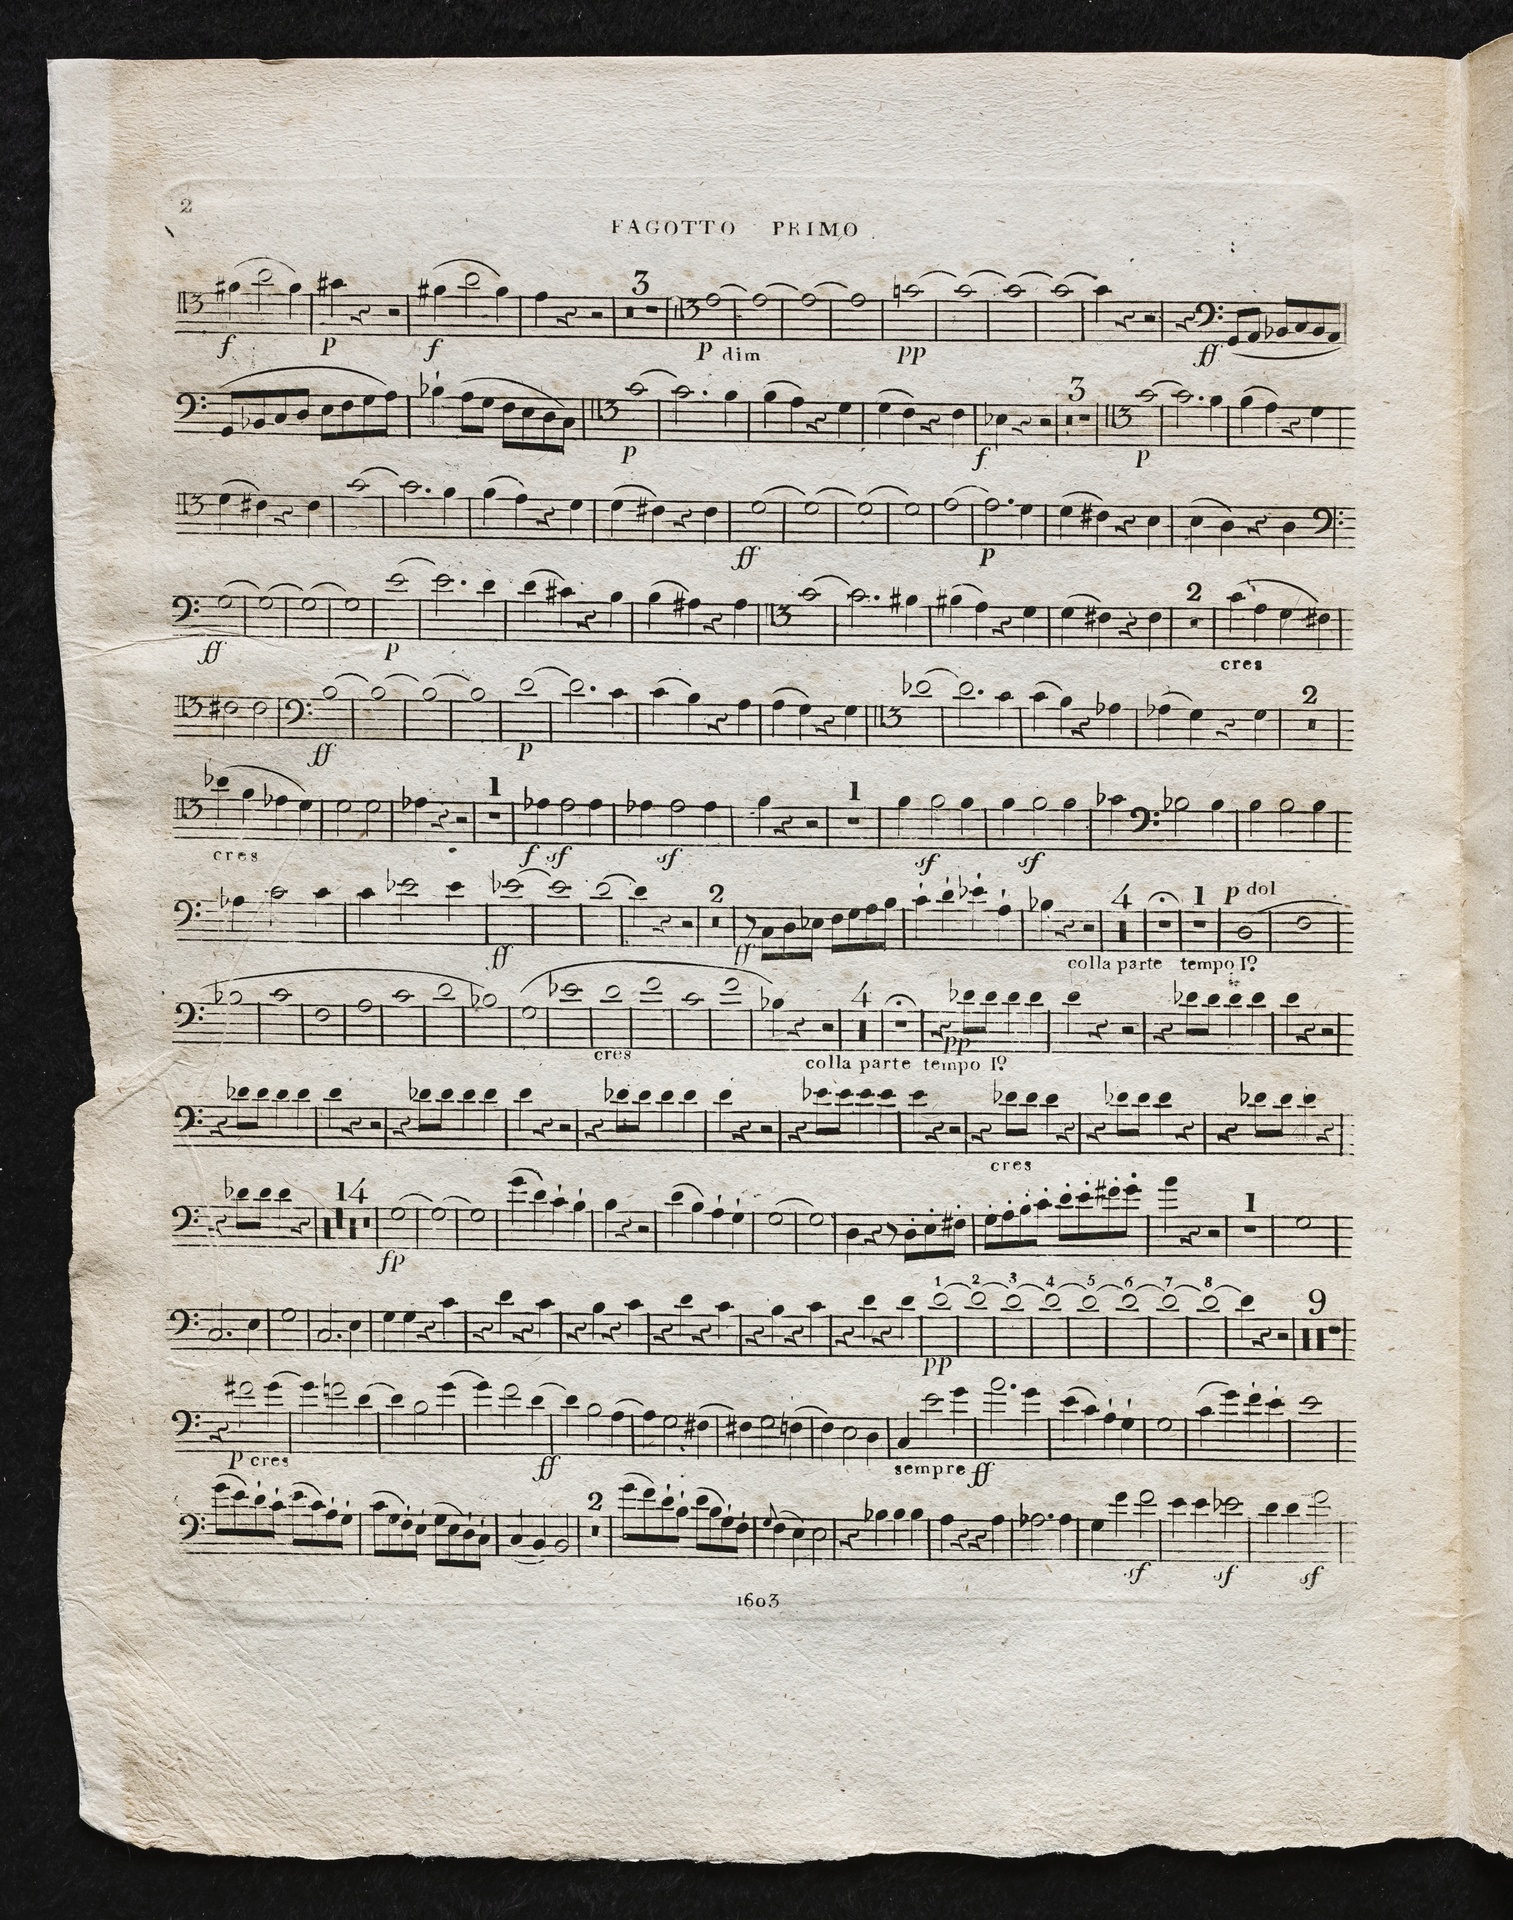 2
FAGOTTO PRIMO
3
f p f p dim pp ff
3
p f p
ff p
2
ff p cres
2
ff p
1 1
cres f sf sf sf sf
2 4 1 p dol
ff ff colla parte tempo Iº
4
cres colla parte tempo Iº pp
cres
14 1
fp
1 2 3 4 5 6 7 8 9
pp
p cres ff sempre ff
2
sf sf sf
1603